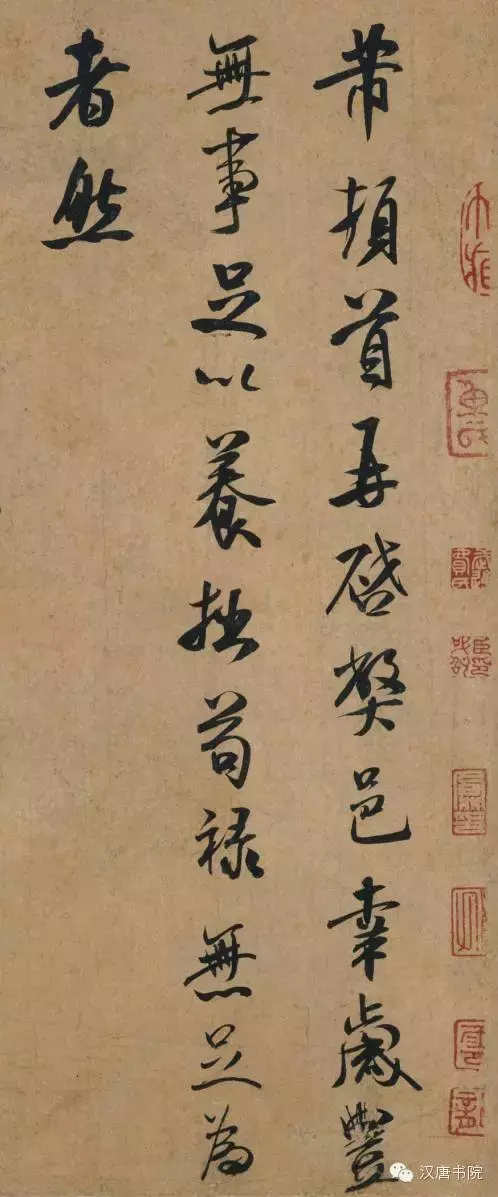 芾頓首再啓弊邑幸歲豐
無事足以養拙苟祿無足為
者然
汉唐书院